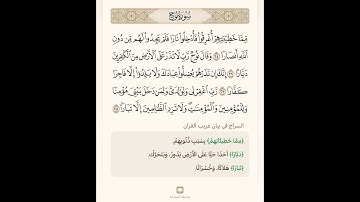 سُورَةُ نُوحٍ
مِّمَّا خَطِيٓـَٰٔتِهِمْ أُغْرِقُوا۟ فَأُدْخِلُوا۟ نَارًا فَلَمْ يَجِدُوا۟ لَهُم مِّن دُونِ
ٱللَّهِ أَنصَارًا ۝ وَقَالَ نُوحٌ رَّبِّ لَا تَذَرْ عَلَى ٱلْأَرْضِ مِنَ ٱلْكَٰفِرِينَ
دَيَّارًا ۝ إِنَّكَ إِن تَذَرْهُمْ يُضِلُّوا۟ عِبَادَكَ وَلَا يَلِدُوٓا۟ إِلَّا فَاجِرًا
كَفَّارًا ۝ رَّبِّ ٱغْفِرْ لِى وَلِوَٰلِدَىَّ وَلِمَن دَخَلَ بَيْتِىَ مُؤْمِنًا
وَلِلْمُؤْمِنِينَ وَٱلْمُؤْمِنَٰتِ وَلَا تَزِدِ ٱلظَّٰلِمِينَ إِلَّا تَبَارًۢا ۝
السراج في بيان غريب القرآن
﴿مِمَّا خَطِيئَاتِهِمْ﴾ بِسَبَبِ ذُنُوبِهِمْ.
﴿دَيَّارًا﴾ أَحَدًا حَيًّا عَلَى الْأَرْضِ يَدُورُ، وَيَتَحَرَّكُ.
﴿تَبَارًا﴾ هَلَاكًا، وَخُسْرَانًا.